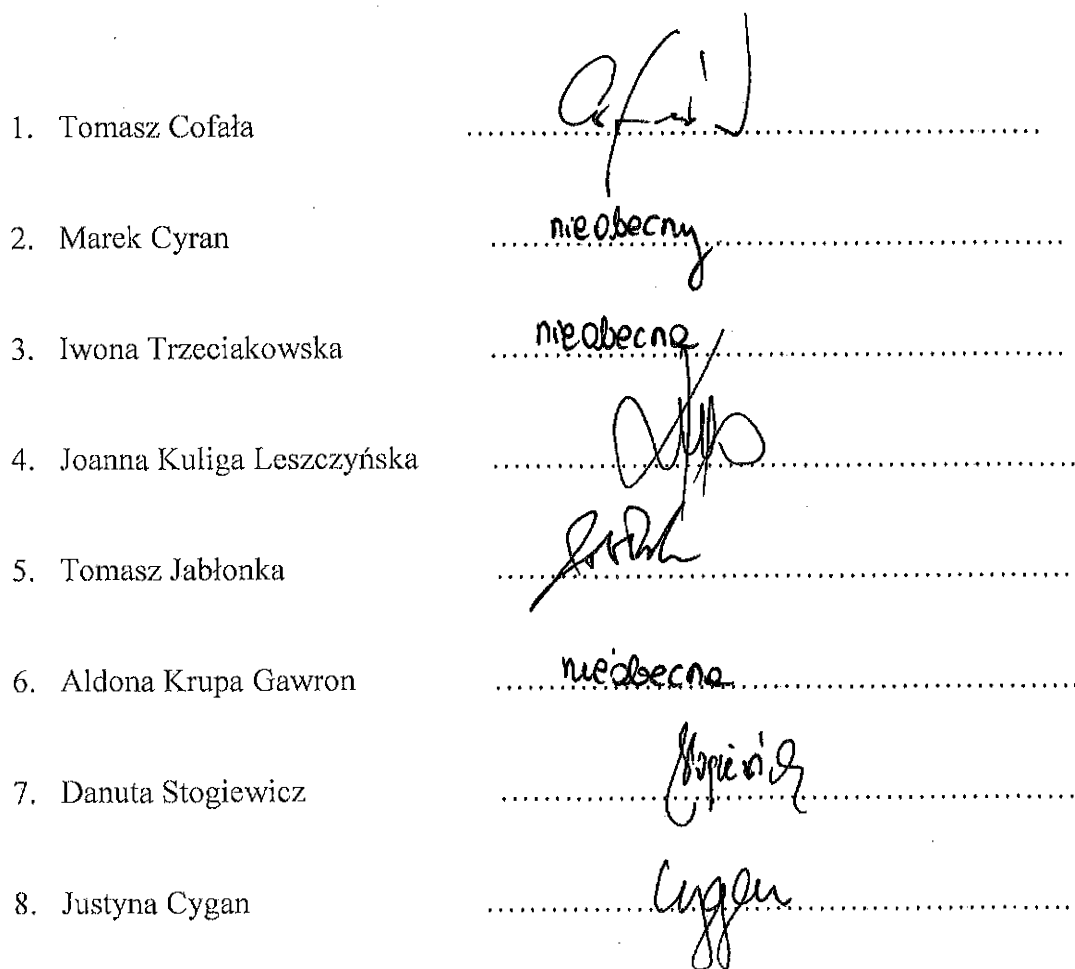 1. Tomasz Cofała ........................................
2. Marek Cyran nieobecny
3. Iwona Trzeciakowska nieobecna
4. Joanna Kuliga Leszczyńska ........................................
5. Tomasz Jabłonka ........................................
6. Aldona Krupa Gawron nieobecna
7. Danuta Stogiewicz ........................................
8. Justyna Cygan Cygan